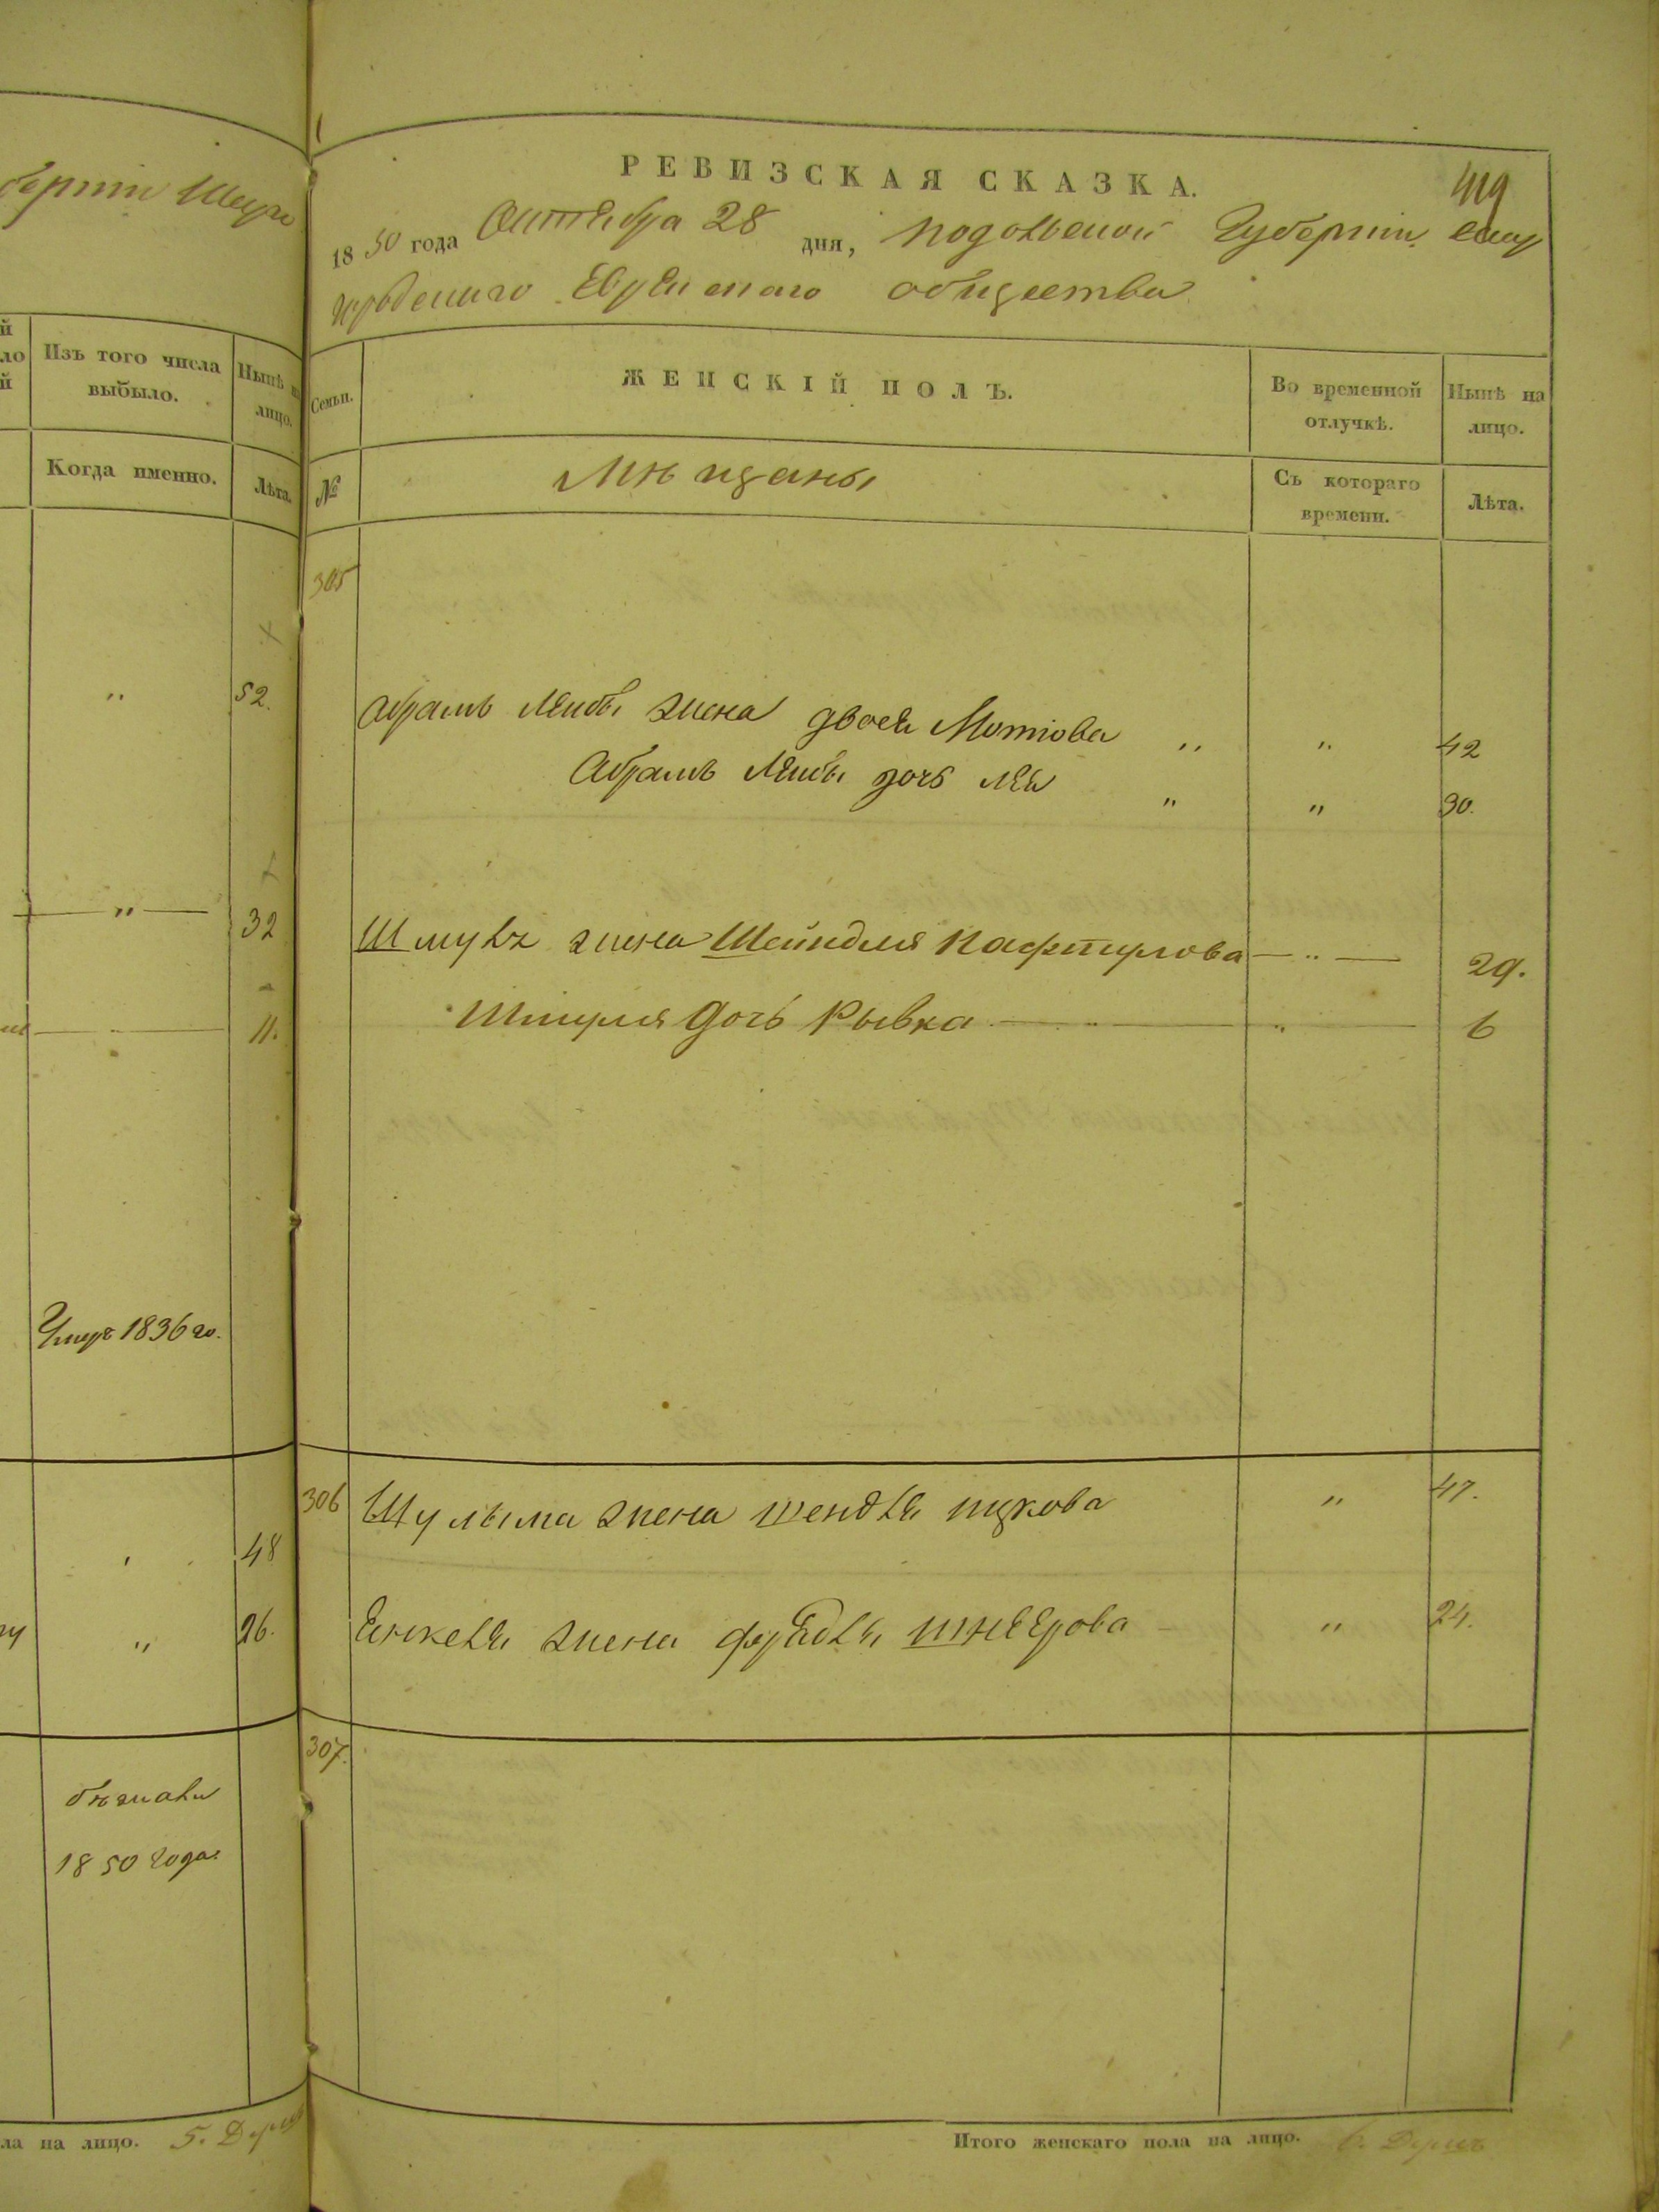 бернии Шаур
й
ло
й
Изъ того числа
выбыло.
Нынѣ на
лицо.
Когда именно.
Лѣта.
" 52.
" 32
11.
Умеръ 1836 го.
48
" 26.
бѣжали
1850 года.
ла на лицо. 5. Душъ
419
РЕВИЗСКАЯ СКАЗКА.
1850 года Октября 28 дня, Подольской Губерніи
Еврейскаго общества
Семьи.
ЖЕНСКІЙ ПОЛЪ.
Во временной
отлучкѣ.
Нынѣ на
лицо.
№
Мѣщаны
Съ котораго
времени.
Лѣта.
305
Абрамъ Лейбы жена двоея Мотіова " " 42
Абрамъ Лейбы дочь Лея " " 30.
Шмуля жена Шейндля Нафтулова " 29.
Шмуля дочь Рывка " " 6
306 Шулыма жена Шендля Ицкова " 47.
Янкеля жена фрадля Шнеерова " 24.
307.
Итого женскаго пола на лицо. 6. Душъ